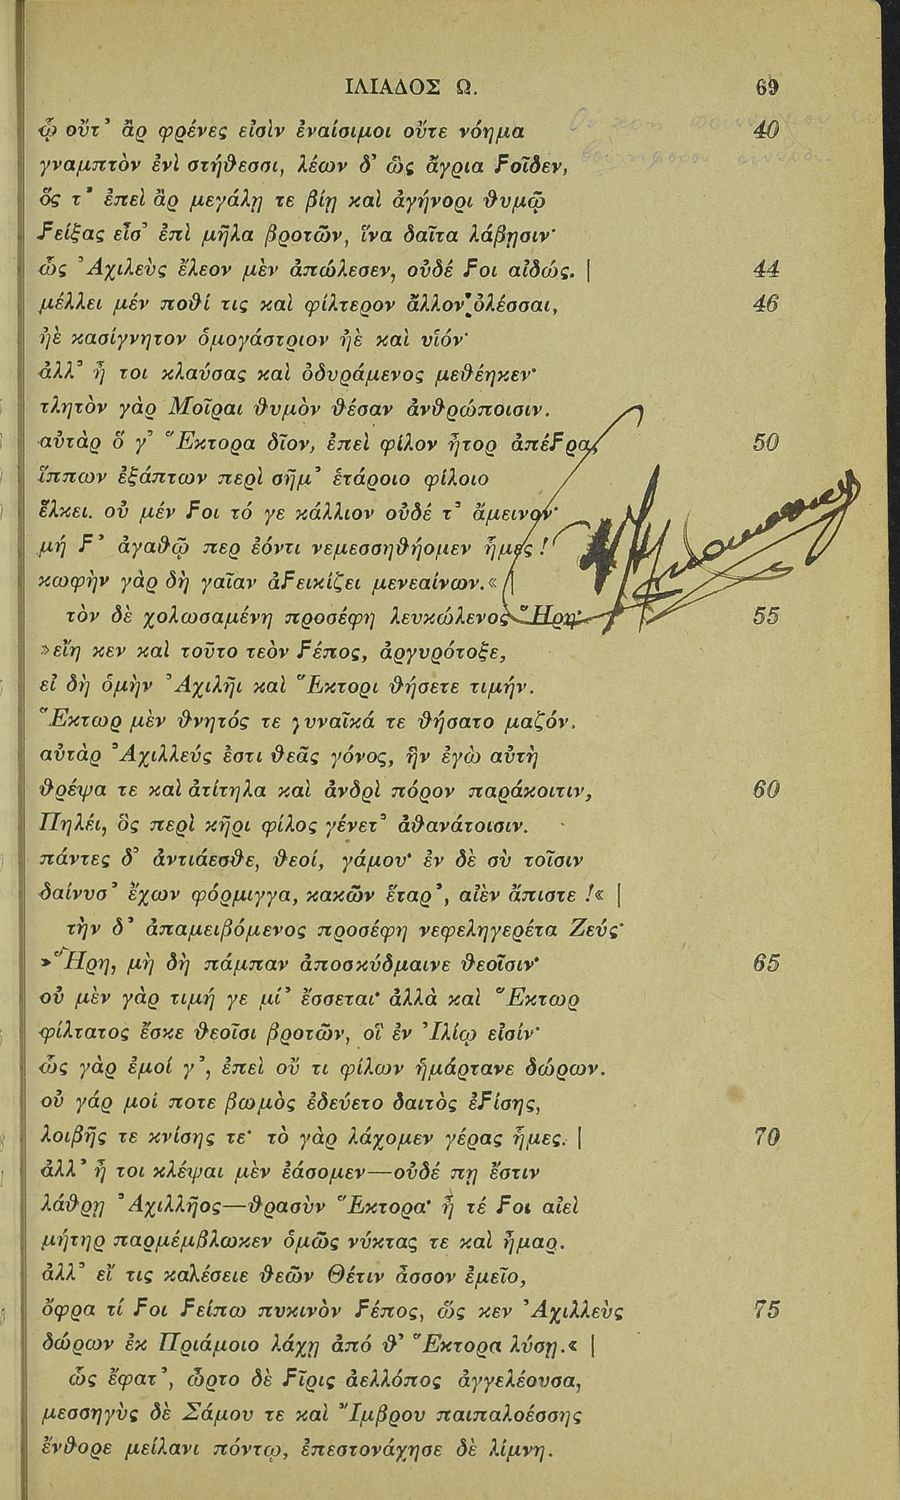 ΙΛΙΑΔΟΣ Ω. 69
ᾧ οὔτ’ ἂρ φρένες εἰσὶν ἐναίσιμοι οὔτε νόημα 40
γναμπτὸν ἐνὶ στήθεσσι, λέων δ’ ὣς ἄγρια Ϝοῖδεν,
ὅς τ’ ἐπεὶ ἂρ μεγάλῃ τε βίῃ καὶ ἀγήνορι θυμῷ
Ϝείξας εἶσ’ ἐπὶ μῆλα βροτῶν, ἵνα δαῖτα λάβῃσιν·
ὣς Ἀχιλεὺς ἔλεον μὲν ἀπώλεσεν, οὐδέ Ϝοι αἰδώς. | 44
μέλλει μέν ποθί τις καὶ φίλτερον ἄλλον ὀλέσσαι, 46
ἠὲ κασίγνητον ὁμογάστριον ἠὲ καὶ υἱόν·
ἀλλ’ ἦ τοι κλαύσας καὶ ὀδυράμενος μεθέηκεν·
τλητὸν γὰρ Μοῖραι θυμὸν θέσαν ἀνθρώποισιν.
αὐτὰρ ὅ γ’ Ἕκτορα δῖον, ἐπεὶ φίλον ἦτορ ἀπέϜρα, 50
ἵππων ἐξάπτων περὶ σῆμ’ ἑτάροιο φίλοιο
ἕλκει. οὐ μέν Ϝοι τό γε κάλλιον οὐδέ τ’ ἄμεινον·
μή Ϝ’ ἀγαθῷ περ ἐόντι νεμεσσηθήομεν ἧμες!
κωφὴν γὰρ δὴ γαῖαν ἀϜεικίζει μενεαίνων.« |
τὸν δὲ χολωσαμένη προσέφη λευκώλενος Ἥρη· 55
»εἴη κεν καὶ τοῦτο τεὸν Ϝέπος, ἀργυρότοξε,
εἰ δὴ ὁμὴν Ἀχιλῆι καὶ Ἕκτορι θήσετε τιμήν.
Ἕκτωρ μὲν θνητός τε γυναῖκά τε θήσατο μαζόν.
αὐτὰρ Ἀχιλλεύς ἐστι θεᾶς γόνος, ἣν ἐγὼ αὐτὴ
θρέψα τε καὶ ἀτίτηλα καὶ ἀνδρὶ πόρον παράκοιτιν, 60
Πηλέι, ὃς περὶ κῆρι φίλος γένετ’ ἀθανάτοισιν.
πάντες δ’ ἀντιάεσθε, θεοί, γάμου· ἐν δὲ σὺ τοῖσιν
δαίνυσ’ ἔχων φόρμιγγα, κακῶν ἕταρ’, αἰὲν ἄπιστε!« |
τὴν δ’ ἀπαμειβόμενος προσέφη νεφεληγερέτα Ζεύς·
»Ἥρη, μὴ δὴ πάμπαν ἀποσκύδμαινε θεοῖσιν· 65
οὐ μὲν γὰρ τιμή γε μί’ ἔσσεται· ἀλλὰ καὶ Ἕκτωρ
φίλτατος ἔσκε θεοῖσι βροτῶν, οἳ ἐν Ἰλίῳ εἰσίν·
ὣς γὰρ ἐμοί γ’, ἐπεὶ οὔ τι φίλων ἡμάρτανε δώρων.
οὐ γάρ μοί ποτε βωμὸς ἐδεύετο δαιτὸς ἐϜίσης,
λοιβῆς τε κνίσης τε· τὸ γὰρ λάχομεν γέρας ἧμες. | 70
ἀλλ’ ἦ τοι κλέψαι μὲν ἐάσομεν—οὐδέ πῃ ἔστιν
λάθρῃ Ἀχιλλῆος—θρασὺν Ἕκτορα· ἦ τέ Ϝοι αἰεὶ
μήτηρ παρμέμβλωκεν ὁμῶς νύκτας τε καὶ ἦμαρ.
ἀλλ’ εἴ τις καλέσειε θεῶν Θέτιν ἆσσον ἐμεῖο,
ὄφρα τί Ϝοι Ϝείπω πυκινὸν Ϝέπος, ὥς κεν Ἀχιλλεὺς 75
δώρων ἐκ Πριάμοιο λάχῃ ἀπό θ’ Ἕκτορα λύσῃ.« |
ὣς ἔφατ’, ὦρτο δὲ Ϝῖρις ἀελλόπος ἀγγελέουσα,
μεσσηγὺς δὲ Σάμου τε καὶ Ἴμβρου παιπαλοέσσης
ἔνθορε μείλανι πόντῳ, ἐπεστονάχησε δὲ λίμνη.